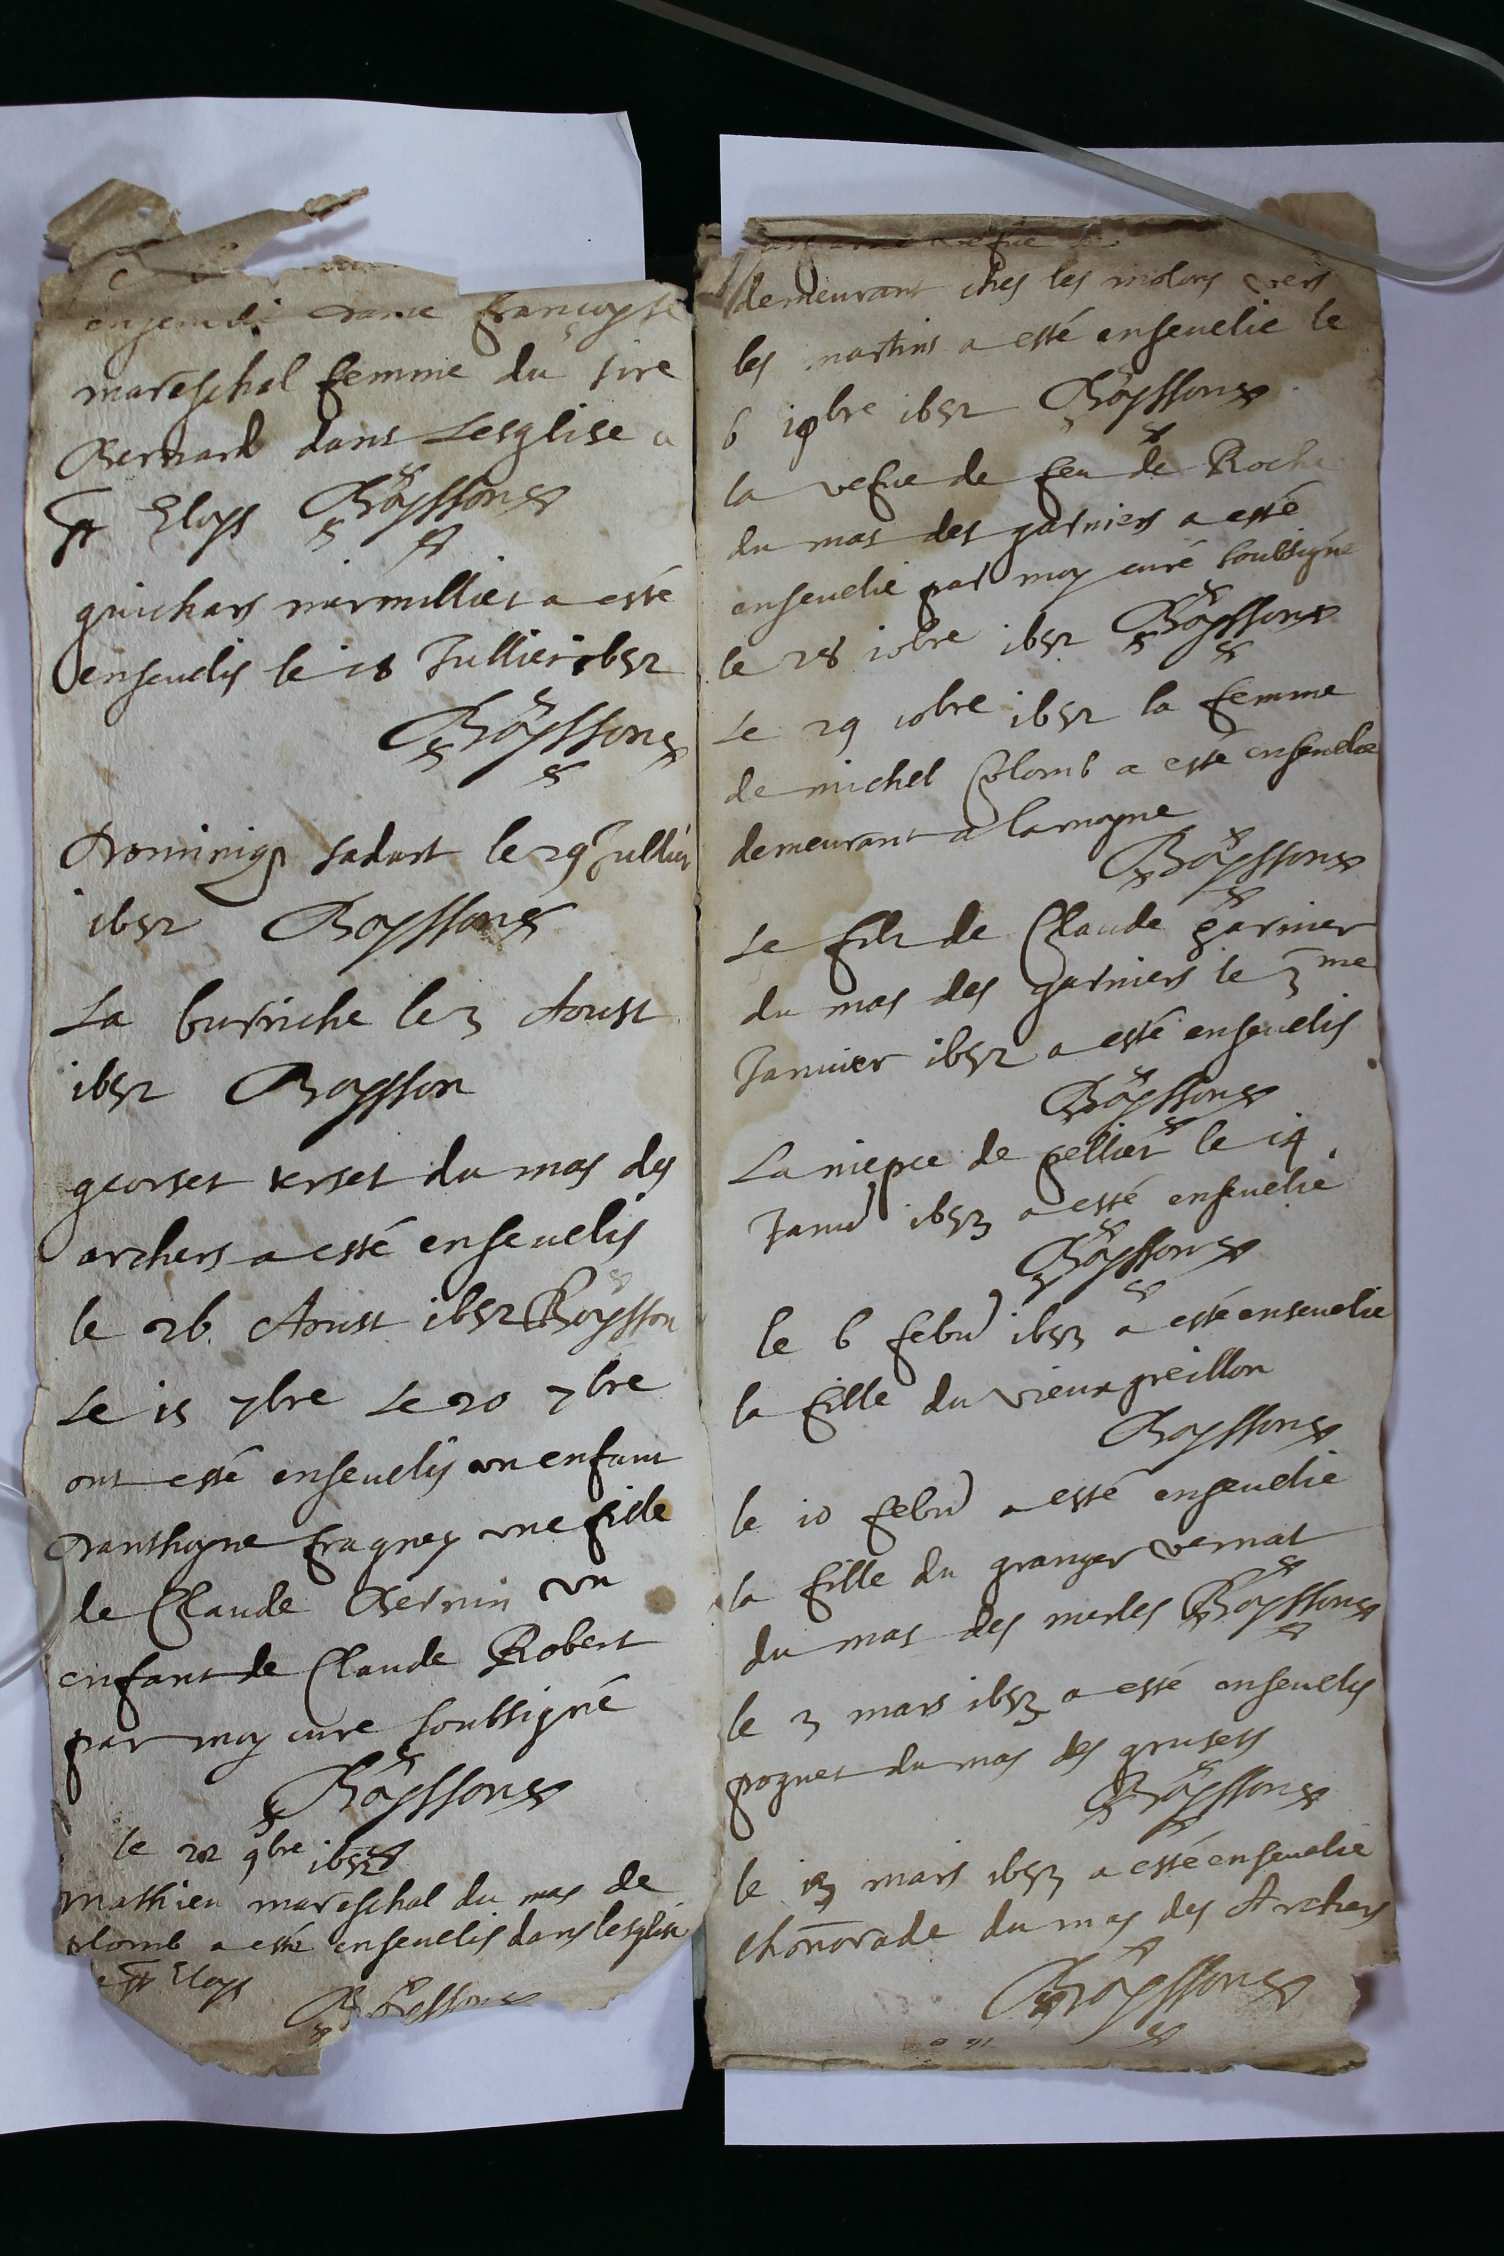 dame francoyse
mareschal femme du sire
Bernard dans Lesglise a
St Eloys Boysson
guichars mermillier a esté
enseuelis le 18 Jullier 1652
Boysson
Dominiq sadart le 29 Jullier
1652 Boysson
La burriche le 3 Aoust
1652 Boysson
georset verset du mas des
archers a esté enseuelis
le 26 Aoust 1652 Boysson
Le 15 7bre Le 20 7bre
ont esté enseuelis un enfant
Danthoyne fragney une fille
de Claude Bernin un
enfant de Claude Robert
par moy cure soubsigné
Boysson
le 22 9bre 1652
Mathieu mareschal du mas de
plomb a esté enseuelis dans lesglise
St Eloys Boysson
demeurant ches les molons vers
les martins a esté enseuelie le
6 10bre 1652 Boysson
la vefue de feu de Roche
du mas des garniers a esté
enseuelie par moy curé soubsigné
le 28 10bre 1652 Boysson
Le 29 10bre 1652 la femme
de michel Colomb a esté enseuelie
demeurant a lamoyne
Boysson
Le fils de Claude garnier
du mas des garniers le 3me
Januier 1652 a esté enseuelis
Boysson
La niepce de pellier le 14
Janu 1653 a esté enseuelie
Boysson
le 6 febu 1653 a esté enseuelie
la fille du vieux greillon
Boysson
le 10 febu a esté enseuelie
la fille du granger vernat
du mas des merles Boysson
le 3 mars 1653 a esté enseuelis
pognet du mas des grusets
Boysson
le 13 mars 1653 a esté enseuelie
thonorade du mas des Archers
Boysson